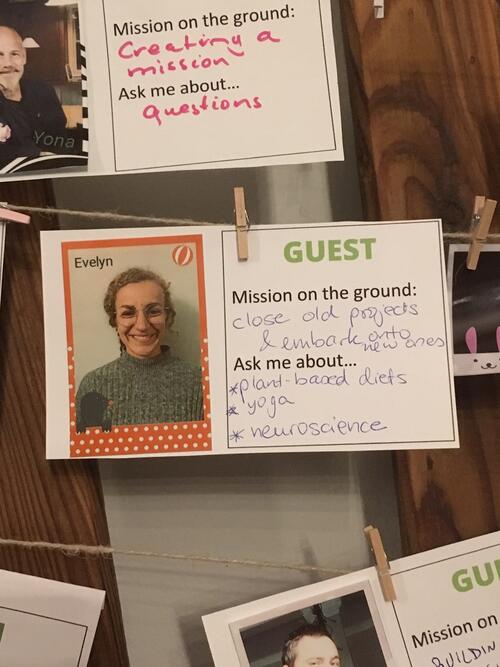 Mission on the ground:
Creating a
mission
Ask me about...
questions
Yona
Evelyn
GUEST
Mission on the ground:
close old projects
& embark onto
new ones
Ask me about...
*plant-based diets
* yoga
* neuroscience
GU
Mission on
BUILDIN